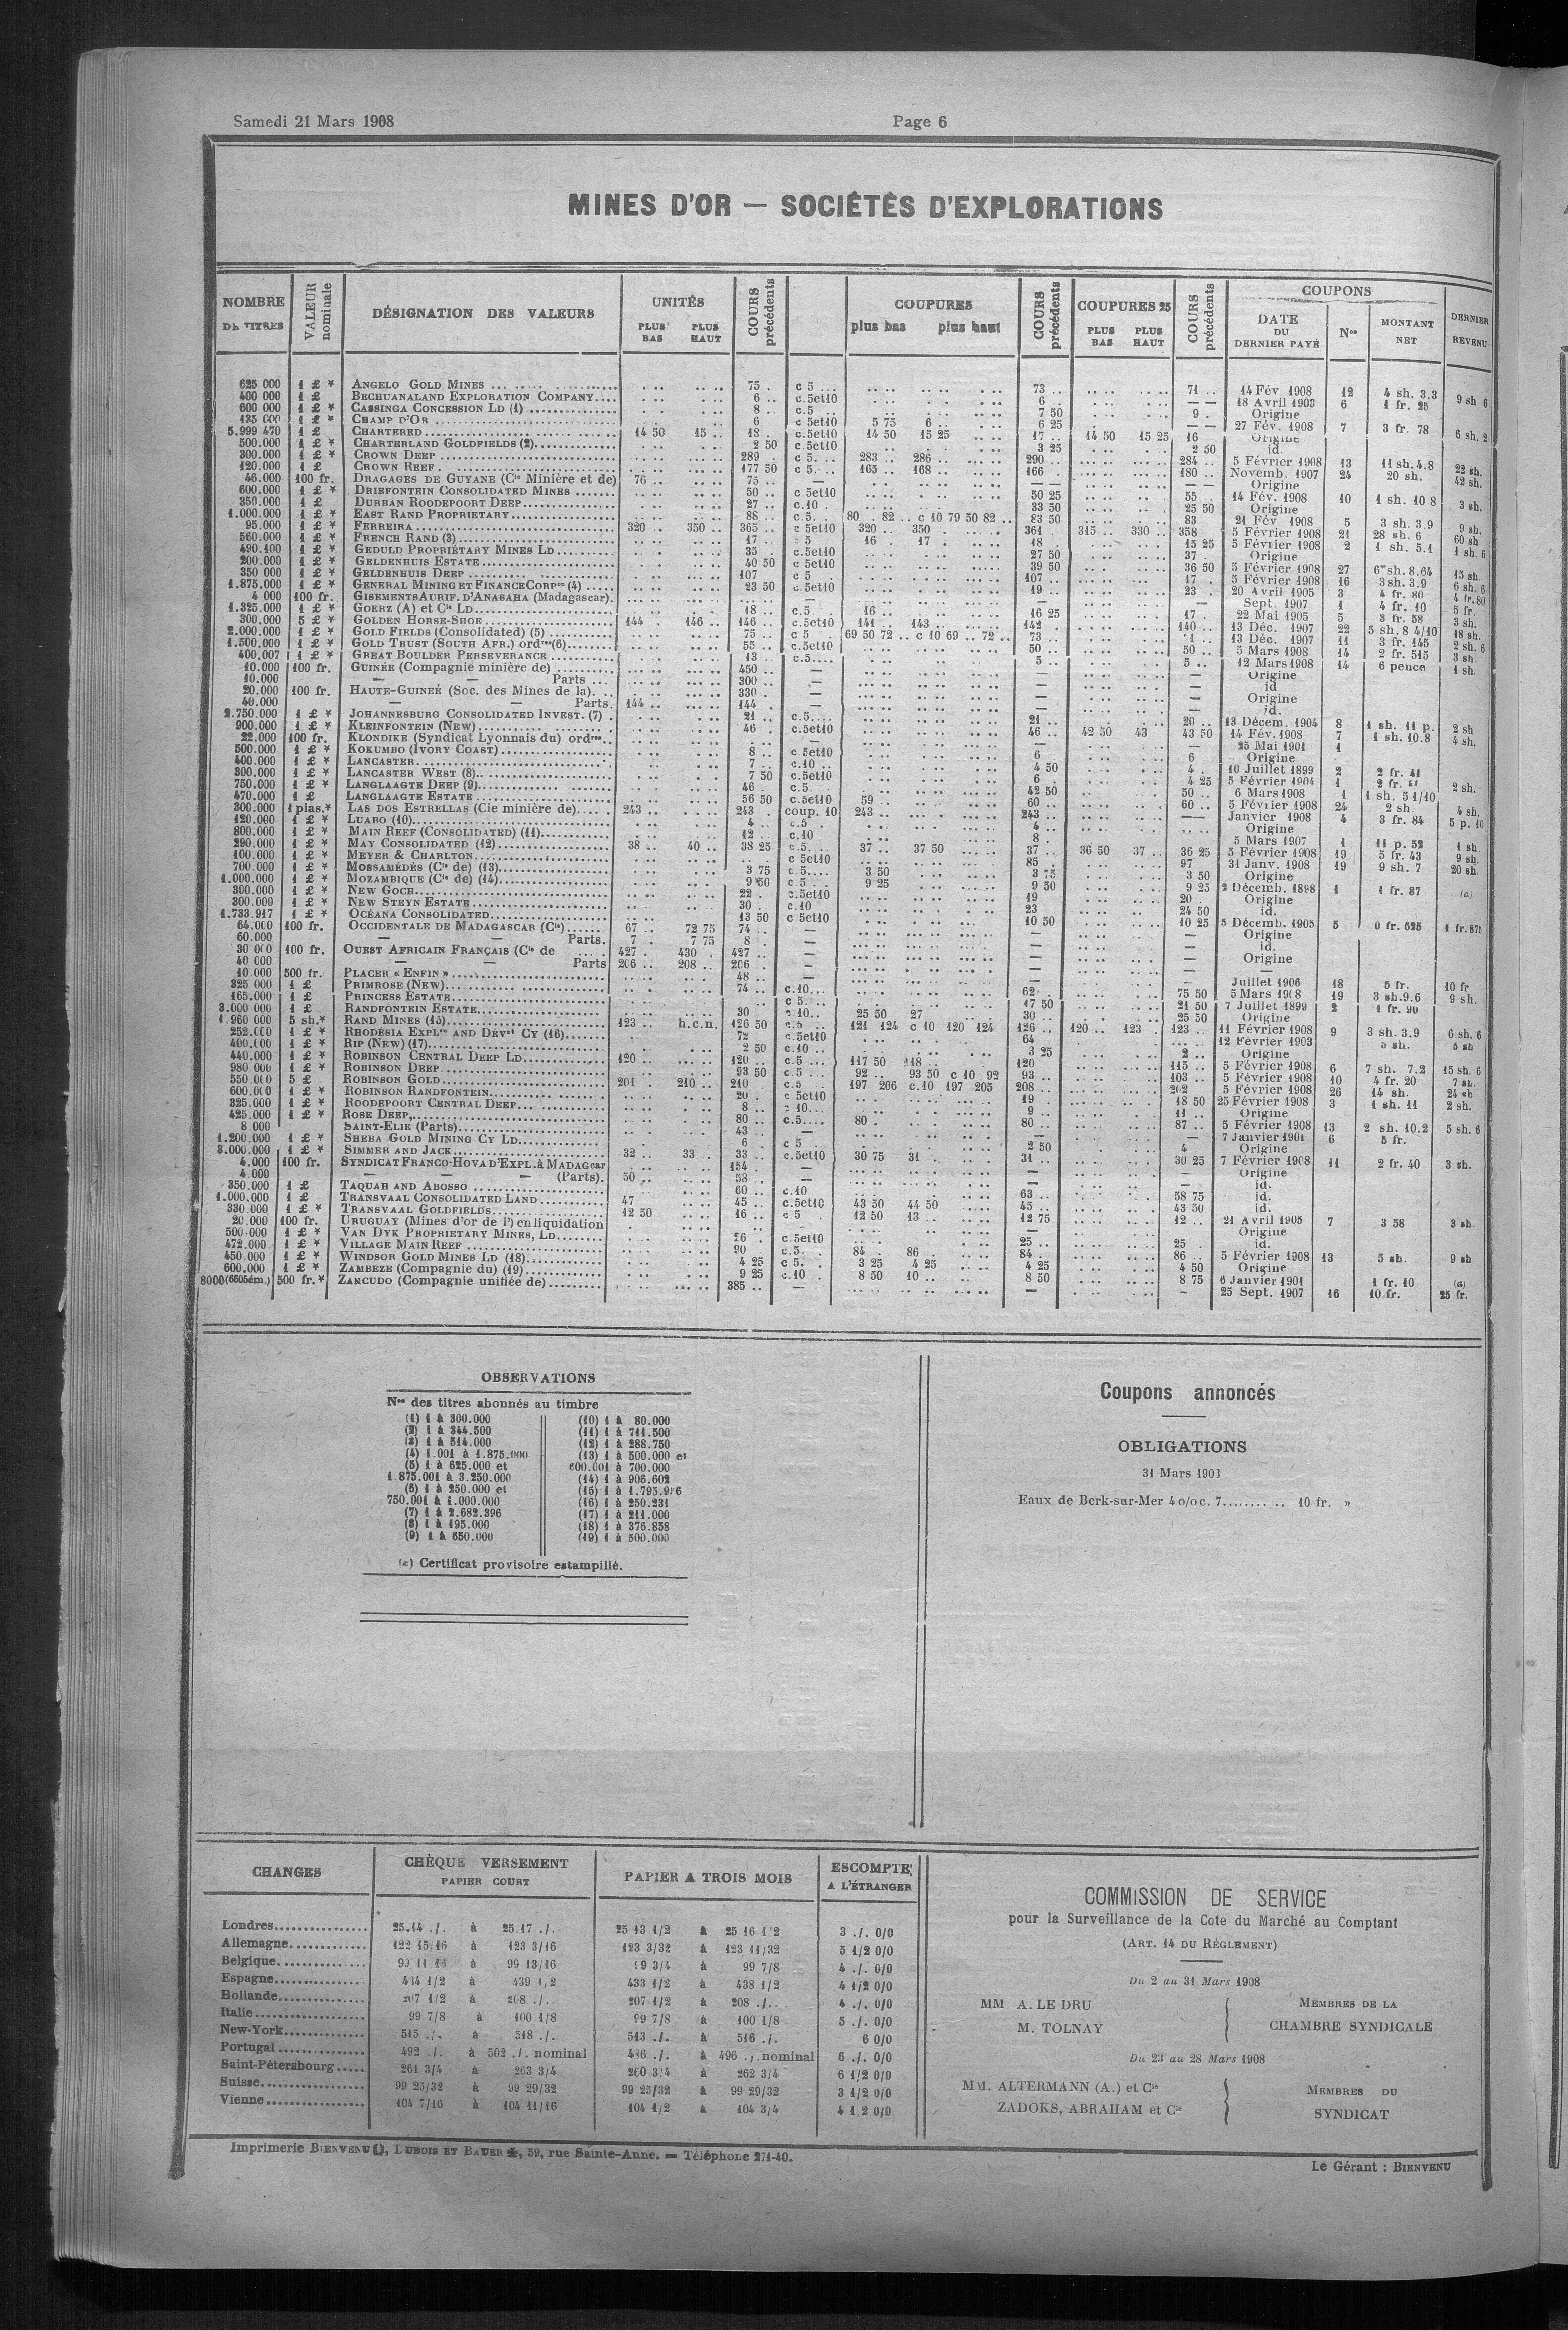 Samedi 21 Mars 1908
Page 6
MINES D'OR — SOCIÉTÉS D'EXPLORATIONS
NOMBRE DE TITRES
VALEUR nominale
DÉSIGNATION DES VALEURS
UNITÉS
PLUS BAS PLUS HAUT
COURS précédents
COUPURES
plus bas plus haut
COURS précédents
COUPURES 25
PLUS BAS PLUS HAUT
COURS précédents
COUPONS
DATE DU DERNIER PAYÉ
Nos
MONTANT NET
DERNIER REVENU
625 000 1 £ * ANGELO GOLD MINES 75 . c 5 ... 73 .. 71 .. 14 Fév 1908 12 4 sh. 3.3 9 sh 6
400 000 1 £ BECHUANALAND EXPLORATION COMPANY.... 6 .. c.5et10 6 .. — — 18 Avril 1903 6 1 fr. 25
600 000 1 £ * CASSINGA CONCESSION LD (1) 8 . c.5 .. 7 50 9 . Origine
135 000 1 £ * CHAMP D'OR 6 c 5et10 5 75 6 .. 6 25 — — 27 Fév. 1908 7 3 fr. 78 6 sh. 2
5.999 470 1 £ CHARTERED 14 50 15 .. 18 . c.5et10 14 50 15 25 17 .. 14 50 15 25 16 Origine
500.000 1 £ * CHARTERLAND GOLDFIELDS (2) 2 50 c 5et10 3 25 2 50 id.
300.000 1 £ * CROWN DEEP 289 . c 5. .. 283 .. 286 .. 290 .. 284 .. 5 Février 1908 13 11 sh. 4.8 22 sh.
120.000 1 £ CROWN REEF 177 50 c 5. .. 165 .. 168 .. 166 . 180 .. Novemb. 1907 24 20 sh. 42 sh.
46.000 100 fr. DRAGAGES DE GUYANE (Cie Minière et de) 76 .. 75 .. — — — Origine
600.000 1 £ * DRIEFONTEIN CONSOLIDATED MINES 50 .. c 5et10 50 25 55 . 14 Fév. 1908 10 1 sh. 10 8 3 sh.
350.000 1 £ DURBAN ROODEPOORT DEEP 27 .. c.10 . 33 50 25 50 Origine
1.000.000 1 £ * EAST RAND PROPRIETARY 88 .. c.5. . 80 . 82 .. c 10 79 50 82 .. 83 50 83 21 Fév 1908 5 3 sh. 3.9 9 sh.
95.000 1 £ * FERREIRA 320 .. 350 .. 365 .. c 5et10 320 .. 350 . 361 . 315 .. 330 .. 358 5 Février 1908 21 28 sh. 6 60 sh
560.000 1 £ * FRENCH RAND (3) 17 .. c 5 16 . 17 . 18 . 15 25 5 Février 1908 2 1 sh. 5.1 1 sh. 6
490.100 1 £ * GEDULD PROPRIÉTARY MINES LD 35 . c.5et10 27 50 37 Origine
200.000 1 £ * GELDENHUIS ESTATE 40 50 c 5et10 39 50 36 50 5 Février 1908 27 6 sh. 8.64 15 sh.
350 000 1 £ * GELDENHUIS DEEP 107 c 5 . 107 .. 17 . 5 Février 1908 16 3 sh. 3.9 6 sh. 6
1.875.000 1 £ * GENERAL MINING ET FINANCE CORPon (4) 23 50 c.5et10 19 .. 23 . 20 Avril 1905 3 4 fr. 80 4 fr. 80
4 000 100 fr. GISEMENTS AURIF. D'ANASAHA (Madagascar). — — — Sept. 1907 1 4 fr. 10 5 fr.
1.325.000 1 £ * GOERZ (A) et Cie LD 18 .. c.5 . 16 .. 16 25 17 . 22 Mai 1905 5 3 fr. 58 3 sh.
300.000 5 £ * GOLDEN HORSE-SHOE 144 . 146 .. 146 .. c.5et10 141 .. 143 .. 142 . 140 .. 13 Déc. 1907 22 5 sh. 8 4/10 18 sh.
2.000.000 1 £ * GOLD FIELDS (Consolidated) (5) 75 .. c 5 . 69 50 72 .. c 10 69 .. 72 .. 73 .. 13 Déc. 1907 11 3 fr. 145 2 sh. 6
1.500.000 1 £ * GOLD TRUST (SOUTH AFR.) ordres (6) 55 .. c.5et10 50 .. 50 .. 5 Mars 1908 14 2 fr. 515 3 sh.
400.007 1 £ * GREAT BOULDER PERSEVERANCE 13 .. c.5.... 5 .. 5 .. 12 Mars 1908 14 6 pence 1 sh.
10.000 100 fr. GUINÉE (Compagnie minière de) 450 .. — — — Origine
10.000 — — Parts ... 300 .. — — — id
20.000 100 fr. HAUTE-GUINEÉ (Soc. des Mines de la). .. 330 . — — — Origine
40.000 — — Parts. 144 .. 144 . — — — id.
2.750.000 1 £ * JOHANNESBURG CONSOLIDATED INVEST. (7) 21 .. c.5.... 21 .. 20 .. 13 Décem. 1904 8 1 sh. 11 p. 2 sh
900.000 1 £ * KLEINFONTEIN (NEW) 46 . c.5et10 46 .. 42 50 43 43 50 14 Fév. 1908 7 1 sh. 10.8 4 sh.
22.000 100 fr. KLONDIKE (Syndicat Lyonnais du) ordres .. — — — 25 Mai 1901 1
500.000 1 £ * KOKUMBO (IVORY COAST) 8 .. c.5et10 6 6 Origine
400.000 1 £ * LANCASTER 7 .. c.10 .. 4 50 4 . 10 Juillet 1899 2 2 fr. 41
300.000 1 £ * LANCASTER WEST (8) 7 50 c.5et10 6 . 4 25 5 Février 1904 1 2 fr. 2 sh.
750.000 1 £ * LANGLAAGTE DEEP (9) 46 . c.5. 42 50 50 . 6 Mars 1908 1 1 sh. 5 1/10
470.000 1 £ LANGLAAGTE ESTATE 56 50 c.5et10 59 .. 60 .. 60 .. 5 Février 1908 24 2 sh. 4 sh.
300.000 1 pias.* LAS DOS ESTRELLAS (Cie minière de) 243 .. 243 . coup. 10 243 .. 243 .. — — Janvier 1908 4 3 fr. 84 5 p. 10
120.000 1 £ * LUABO (10) 4 .. c.5 . 4 .. Origine
800.000 1 £ * MAIN REEF (CONSOLIDATED) (11) 12 . c.10 8 . 5 Mars 1907 1 11 p. 52 1 sh.
290.000 1 £ * MAY CONSOLIDATED (12) 38 .. 40 .. 38 25 c.5. .. 37 .. 37 50 37 .. 36 50 37 .. 36 25 5 Février 1908 19 5 fr. 43 9 sh.
100.000 1 £ * MEYER & CHARLTON c 5et10 85 . 97 31 Janv. 1908 19 9 sh. 7 20 sh.
700.000 1 £ * MOSSAMÉDÈS (Cie de) (13) 3 75 c.5.... 3 50 3 75 3 50 Origine
1.000.000 1 £ * MOZAMBIQUE (Cie de) (14) 9 50 c 5 . . 9 25 9 50 9 25 2 Décemb. 1898 1 1 fr. 87 (a)
300.000 1 £ * NEW GOCH 22 . c.5et10 19 20 . Origine
300.000 1 £ * NEW STEYN ESTATE 30 .. c.10 23 24 50 id.
1.733.917 1 £ * OCÉANA CONSOLIDATED 13 50 c 5et10 10 50 10 25 5 Décemb. 1905 5 0 fr. 625 1 fr. 875
64.000 100 fr. OCCIDENTALE DE MADAGASCAR (Cie) 67 .. 72 75 74 .. — — — Origine
60.000 — — Parts. 7 . 7 75 8 . — — — id.
30 000 100 fr. OUEST AFRICAIN FRANÇAIS (Cie de 427 . 430 . 427 .. — — — Origine
40 000 — — Parts 206 .. 208 .. 206 . — — — —
10.000 500 fr. PLACER « ENFIN » 48 .. — — — Juillet 1906 18 5 fr. 10 fr
325 000 1 £ PRIMROSE (NEW) 74 .. c.10... 62 . 75 50 5 Mars 1908 19 3 sh. 9.6 9 sh.
165.000 1 £ PRINCESS ESTATE c 5. .. 17 50 21 50 7 Juillet 1899 2 1 fr. 90
3.000 000 1 £ RANDFONTEIN ESTATE 30 c.10.. 25 50 27 30 .. 25 50 Origine
1.960 000 5 sh.* RAND MINES (15) 123 .. h.c.n. 126 50 c.5 .. 121 124 c 10 120 124 126 .. 120 .. 123 . 123 .. 11 Février 1908 9 3 sh. 3.9 6 sh. 6
252.000 1 £ * RHODÉSIA EXPLon AND DÉVent CY (16) 72 c.5et10 64 12 Février 1903 5 sh. 5 sh
400.000 1 £ * RIP (NEW) (17) 2 50 c.10 .. 3 25 2 .. Origine
440.000 1 £ * ROBINSON CENTRAL DEEP LD 120 .. 120 .. c.5 ... 117 50 118 .. 120 115 .. 5 Février 1908 6 7 sh. 7.2 15 sh. 6
980 000 1 £ * ROBINSON DEEP 93 50 c 5 ... 92 .. 93 50 c 10 92 93 .. 103 .. 5 Février 1908 10 4 fr. 20 7 sh.
550.000 5 £ ROBINSON GOLD 201 . 210 .. 210 c.5 . 197 266 c.10 197 205 208 .. 202 5 Février 1908 26 14 sh. 24 sh
600.000 1 £ * ROBINSON RANDFONTEIN 20 . c 5et10 19 18 50 25 Février 1908 3 1 sh. 11 2 sh.
325.000 1 £ * ROODEPOORT CENTRAL DEEP 8 .. c 10... 9 .. 11 .. Origine
425.000 1 £ * ROSE DEEP 80 .. c.5.... 80 . 80 .. 87 .. 5 Février 1908 13 2 sh. 10.2 5 sh. 6
8 000 SAINT-ELIE (Parts) 43 .. — — — 7 Janvier 1901 6 5 fr.
1.200.000 1 £ * SHEBA GOLD MINING CY LD 6 . c 5 . 2 50 4 Origine
3.000.000 1 £ * SIMMER AND JACK 32 .. 33 .. 33 .. c.5et10 30 75 31 . 31 .. 30 25 7 Février 1908 11 2 fr. 40 3 sh.
4.000 100 fr. SYNDICAT FRANCO-HOVA D'EXPL. à MADAGcar 154 . — — — Origine
4.000 — — (Parts). 50 .. 53 . — — — id.
350.000 1 £ TAQUAH AND ABOSSO 60 .. c.10 63 .. 58 75 id.
1.000.000 1 £ TRANSVAAL CONSOLIDATED LAND 47 45 .. c.5et10 43 50 44 50 45 .. 43 50 id.
330.000 1 £ * TRANSVAAL GOLDFIELDS 12 50 16 .. c.5 . 12 50 13 .. 12 75 12 .. 21 Avril 1905 7 3 58 3 sh
20.000 100 fr. URUGUAY (Mines d'or de l') en liquidation — — Origine
500.000 1 £ * VAN DYK PROPRIETARY MINES, LD 26 . c.5et10 25 .. 25 . id.
472.000 1 £ * VILLAGE MAIN REEF 90 c.5. . 84 . 86 . 84 . 86 .. 5 Février 1908 13 5 sh. 9 sh
450.000 1 £ * WINDSOR GOLD MINES LD (18) 4 25 c 5. . 3 25 4 25 4 25 4 50 Origine
600.000 1 £ * ZAMBEZE (Compagnie du) (19) 9 25 c.10 . 8 50 10 .. 8 50 8 75 6 Janvier 1901 1 fr. 10 (a)
8000(6605ém.) 500 fr.* ZANCUDO (Compagnie unifiée de) 385 .. — — - 25 Sept. 1907 16 10 fr. 25 fr.
OBSERVATIONS
Nos des titres abonnés au timbre
(1) 1 à 300.000
(2) 1 à 344.500
(3) 1 à 514.000
(4) 1.001 à 1.875.000
(5) 1 à 625.000 et
1.875.001 à 3.250.000
(6) 1 à 250.000 et
750.001 à 1.000.000
(7) 1 à 2.682.396
(8) 1 à 195.000
(9) 1 à 650.000
(10) 1 à 80.000
(11) 1 à 711.500
(12) 1 à 288.750
(13) 1 à 500.000 et
600.001 à 700.000
(14) 1 à 906.602
(15) 1 à 1.793.936
(16) 1 à 250.231
(17) 1 à 211.000
(18) 1 à 376.858
(19) 1 à 500.000
(a) Certificat provisoire estampillé.
Coupons annoncés
OBLIGATIONS
31 Mars 1903
Eaux de Berk-sur-Mer 4 o/o c. 7........ .. 10 fr. »
CHANGES
CHÈQUE VERSEMENT
PAPIER COURT
PAPIER A TROIS MOIS
ESCOMPTE
A L'ÉTRANGER
Londres 25.14 ./. à 25.17 ./. 25 13 1/2 à 25 16 1/2 3 ./. 0/0
Allemagne 122 15/16 à 123 3/16 123 3/32 à 123 11/32 5 1/2 0/0
Belgique 99 11 16 à 99 13/16 99 3/4 à 99 7/8 4 ./. 0/0
Espagne 434 1/2 à 439 1/2 433 1/2 à 438 1/2 4 1/2 0/0
Hollande 207 1/2 à 208 ./. 207 1/2 à 208 ./. 4 ./. 0/0
Italie 99 7/8 à 100 1/8 99 7/8 à 100 1/8 5 ./. 0/0
New-York 515 ./. à 518 ./. 513 ./. à 516 ./. 6 0/0
Portugal 492 ./. à 502 ./. nominal 486 ./. à 496 ./. nominal 6 ./. 0/0
Saint-Pétersbourg 261 3/4 à 263 3/4 260 3/4 à 262 3/4 6 1/2 0/0
Suisse 99 25/32 à 99 29/32 99 25/32 à 99 29/32 3 1/2 0/0
Vienne 104 7/16 à 104 11/16 104 1/2 à 104 3/4 4 1/2 0/0
COMMISSION DE SERVICE
pour la Surveillance de la Cote du Marché au Comptant
(ART. 14 DU RÈGLEMENT)
Du 2 au 31 Mars 1908
MM A. LE DRU
M. TOLNAY
MEMBRES DE LA
CHAMBRE SYNDICALE
Du 23 au 28 Mars 1908
MM. ALTERMANN (A.) et Cie
ZADOKS, ABRAHAM et Cie
MEMBRES DU
SYNDICAT
Imprimerie BIENVENU, DUBOIS ET BAUER, 59, rue Sainte-Anne. — Téléphone 271-40.
Le Gérant : BIENVENU